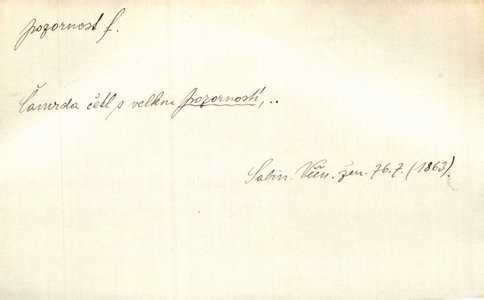 pozornost f.
Čamrda četl s velkou pozorností,..
Sabin. Věčn. žen. 76.7. (1863).